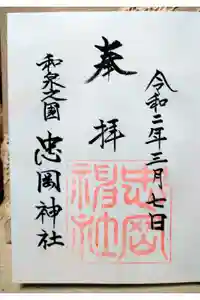 令和二年三月七日
奉拝
和泉之国
忠岡神社
忠岡神社